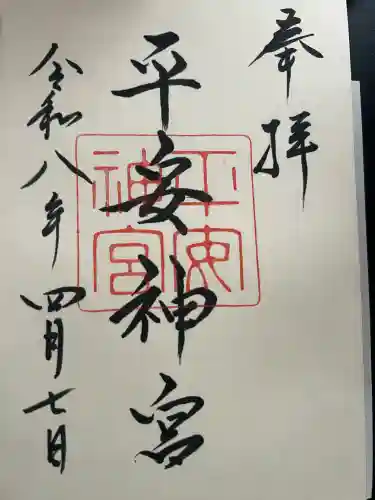 奉拝
平安神宮
平安神宮
令和八年四月七日